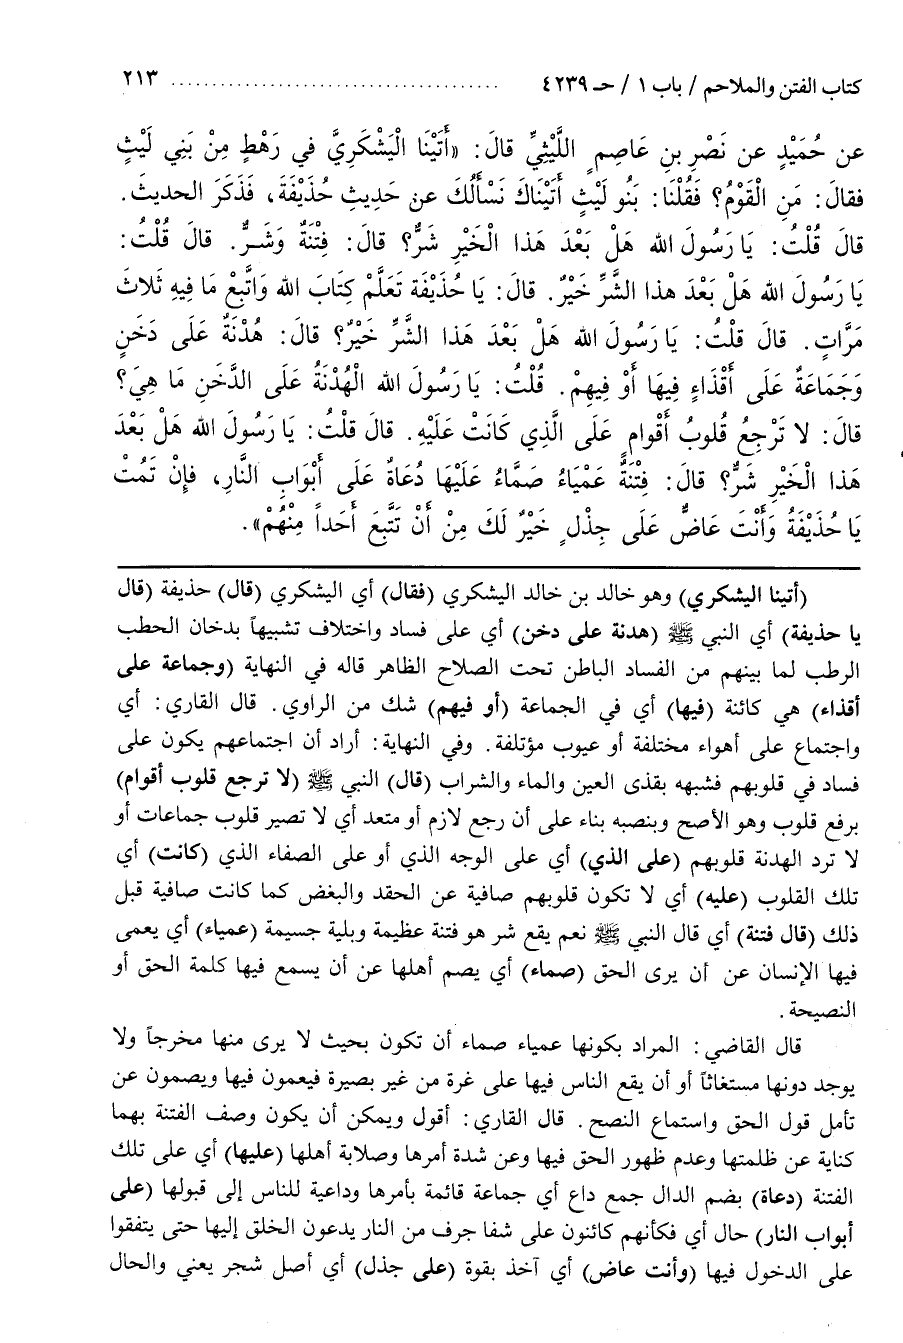 كتاب الفتن والملاحم / باب ١ / حـ ٤٢٣٩ ........................................ ٢١٣
عن حُمَيْدٍ عن نَصْرِ بنِ عَاصِمٍ اللَّيْثِيِّ قالَ: «أَتَيْنَا الْيَشْكَرِيَّ في رَهْطٍ مِنْ بَنِي لَيْثٍ
فقالَ: مَنِ الْقَوْمُ؟ فَقُلْنَا: بَنُو لَيْثٍ أَتَيْنَاكَ نَسْأَلُكَ عن حَدِيثِ حُذَيْفَةَ، فَذَكَرَ الحديثَ.
قالَ قُلْتُ: يَا رَسُولَ الله هَلْ بَعْدَ هَذا الْخَيْرِ شَرٌّ؟ قالَ: فِتْنَةٌ وَشَرٌّ. قالَ قُلْتُ:
يَا رَسُولَ الله هَلْ بَعْدَ هذا الشَّرِّ خَيْرٌ. قالَ: يَا حُذَيْفَة تَعَلَّمْ كِتَابَ الله وَاتَّبِعْ مَا فِيهِ ثَلاثَ
مَرَّاتٍ. قالَ قُلْتُ: يَا رَسُولَ الله هَلْ بَعْدَ هَذَا الشَّرِّ خَيْرٌ؟ قالَ: هُدْنَةٌ عَلَى دَخَنٍ
وَجَمَاعَةٌ عَلَى أَقْذَاءٍ فِيهَا أَوْ فِيهِمْ. قُلْتُ: يَا رَسُولَ الله الْهُدْنَةُ عَلَى الدَّخَنِ مَا هِيَ؟
قالَ: لا تَرْجِعُ قُلُوبُ أَقْوَامٍ عَلَى الَّذِي كَانَتْ عَلَيْهِ. قالَ قلْتُ: يَا رَسُولَ الله هَلْ بَعْدَ
هَذا الْخَيْرِ شَرٌّ؟ قالَ: فِتْنَةٌ عَمْيَاءُ صَمَّاءُ عَلَيْهَا دُعَاةٌ عَلَى أَبْوَابِ النَّارِ، فَإِنْ تَمُتْ
يَا حُذَيْفَةُ وَأَنْتَ عَاضٌّ عَلَى جِذْلٍ خَيْرٌ لَكَ مِنْ أَنْ تَتَّبِعَ أَحَداً مِنْهُمْ».
(أتينا اليشكري) وهو خالد بن خالد اليشكري (فقال) أي اليشكري (قال) حذيفة (قال
يا حذيفة) أي النبي ﷺ (هدنة على دخن) أي على فساد واختلاف تشبيهاً بدخان الحطب
الرطب لما بينهم من الفساد الباطن تحت الصلاح الظاهر قاله في النهاية (وجماعة على
أقذاء) هي كائنة (فيها) أي في الجماعة (أو فيهم) شك من الراوي. قال القاري: أي
واجتماع على أهواء مختلفة أو عيوب مؤتلفة. وفي النهاية: أراد أن اجتماعهم يكون على
فساد في قلوبهم فشبهه بقذى العين والماء والشراب (قال) النبي ﷺ (لا ترجع قلوب أقوام)
برفع قلوب وهو الأصح وبنصبه بناء على أن رجع لازم أو متعد أي لا تصير قلوب جماعات أو
لا ترد الهدنة قلوبهم (على الذي) أي على الوجه الذي أو على الصفاء الذي (كانت) أي
تلك القلوب (عليه) أي لا تكون قلوبهم صافية عن الحقد والبغض كما كانت صافية قبل
ذلك (قال فتنة) أي قال النبي ﷺ نعم يقع شر هو فتنة عظيمة وبلية جسيمة (عمياء) أي يعمى
فيها الإنسان عن أن يرى الحق (صماء) أي يصم أهلها عن أن يسمع فيها كلمة الحق أو
النصيحة.
قال القاضي: المراد بكونها عمياء صماء أن تكون بحيث لا يرى منها مخرجاً ولا
يوجد دونها مستغاثاً أو أن يقع الناس فيها على غرة من غير بصيرة فيعمون فيها ويصمون عن
تأمل قول الحق واستماع النصح. قال القاري: أقول ويمكن أن يكون وصف الفتنة بهما
كناية عن ظلمتها وعدم ظهور الحق فيها وعن شدة أمرها وصلابة أهلها (عليها) أي على تلك
الفتنة (دعاة) بضم الدال جمع داع أي جماعة قائمة بأمرها وداعية للناس إلى قبولها (على
أبواب النار) حال أي فكأنهم كائنون على شفا جرف من النار يدعون الخلق إليها حتى يتفقوا
على الدخول فيها (وأنت عاض) أي آخذ بقوة (على جذل) أي أصل شجر يعني والحال